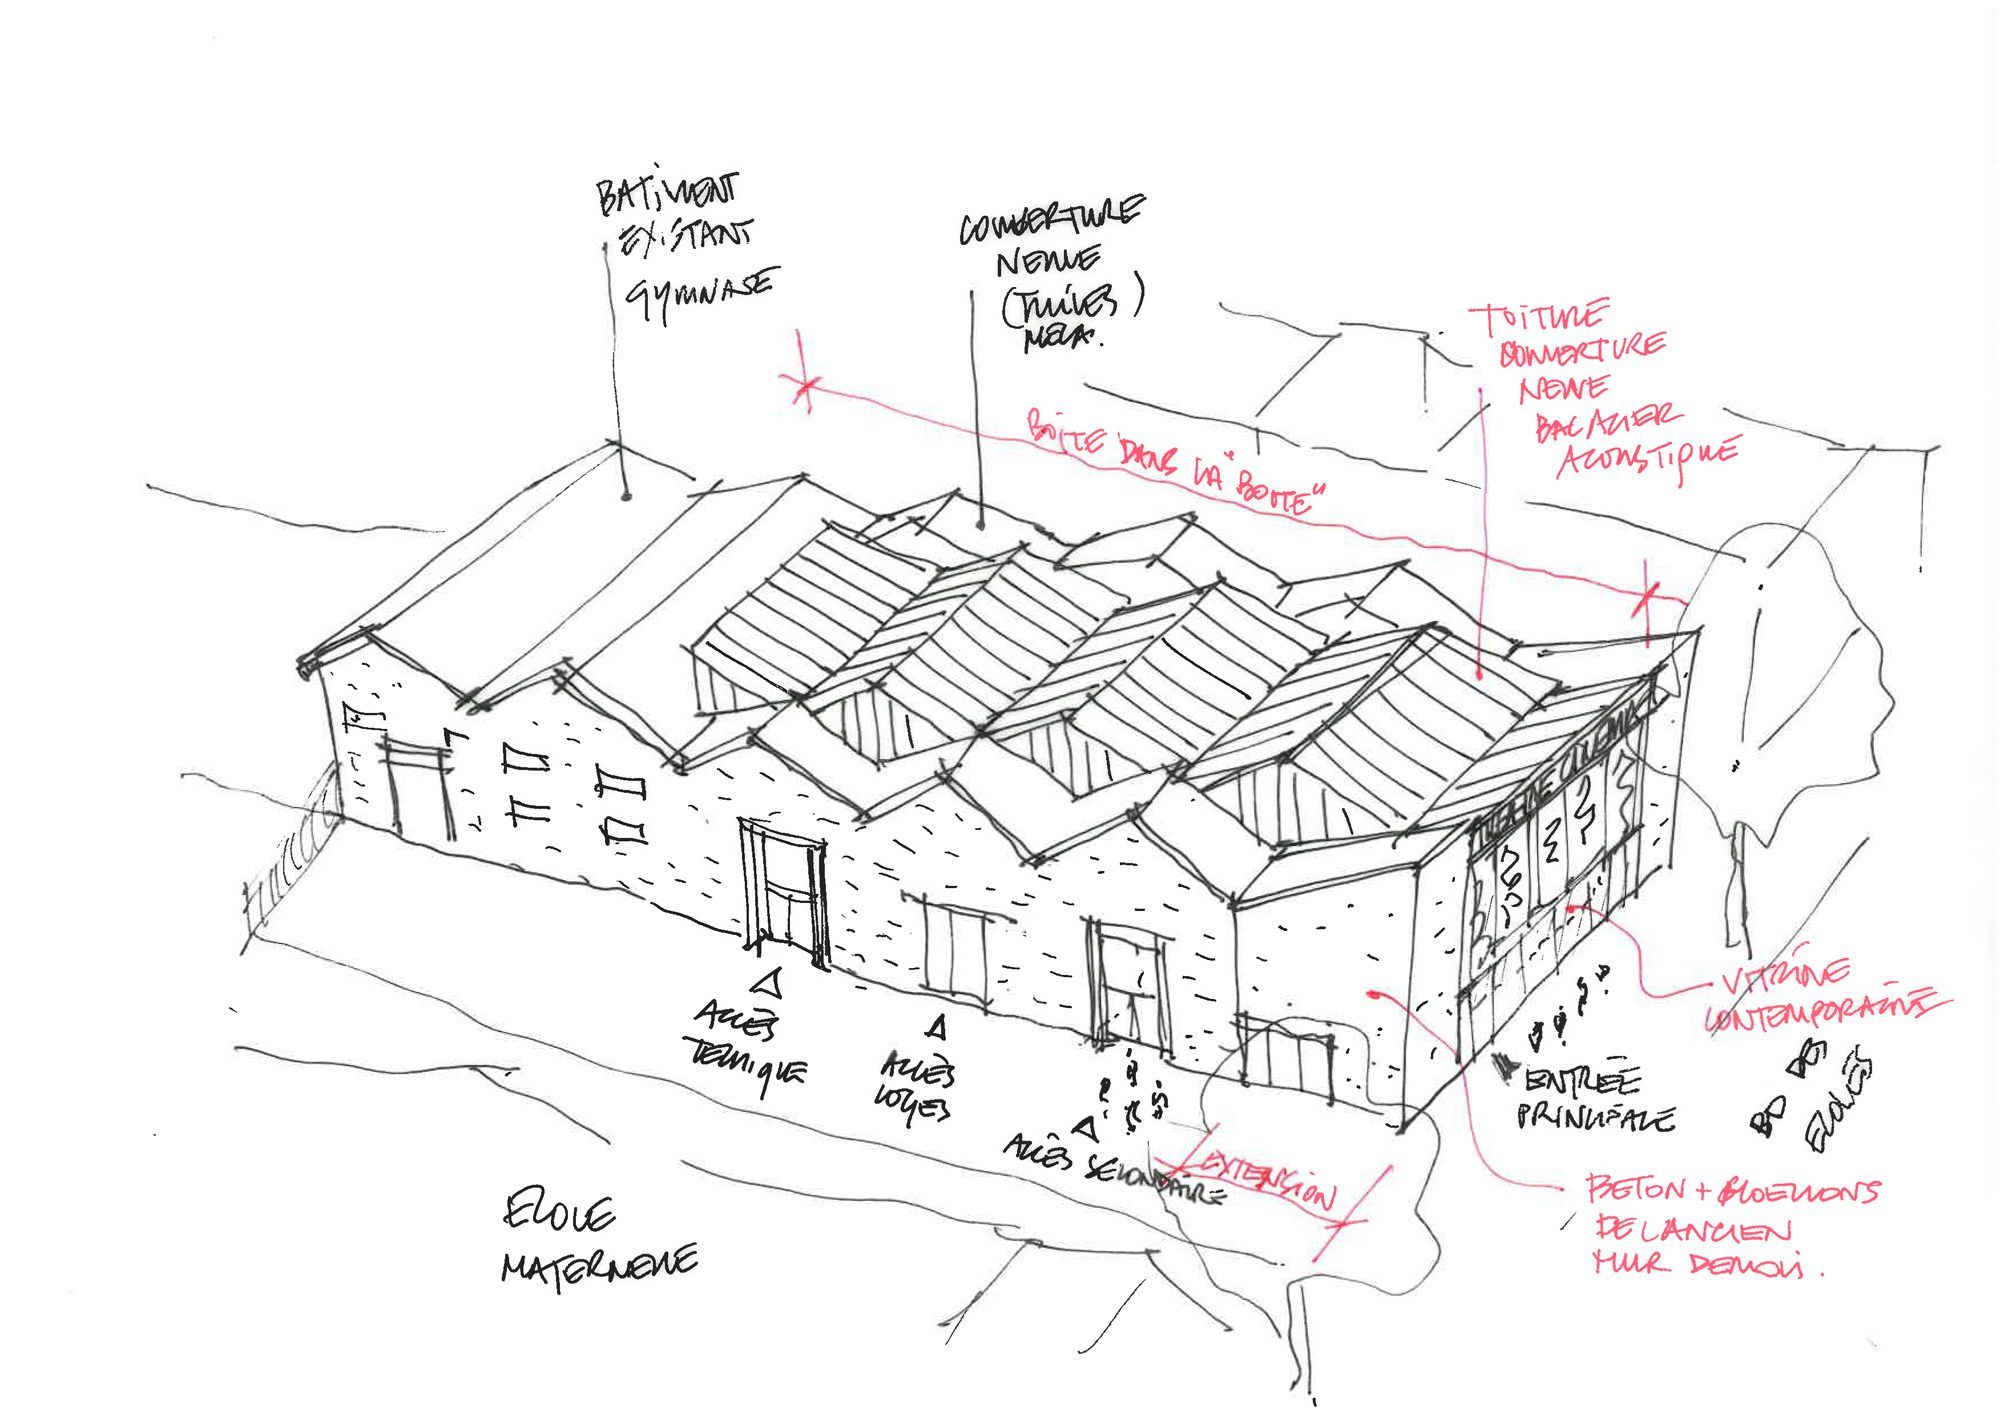 BATIMENT
EXISTANT
GYMNASE
COUVERTURE
NEUVE
(TUILES)
MECA.
TOITURE
COUVERTURE
NEUVE
BAC ACIER
ACOUSTIQUE
BOITE DANS LA "BOITE"
VITRINE
CONTEMPORAINE
BD DES
ECOLES
ENTRÉE
PRINCIPALE
ACCÈS
TECHNIQUE
ACCÈS
LOGES
ACCÈS SECONDAIRE
EXTENSION
BETON + MOELLONS
DE L'ANCIEN
MUR DEMOLI.
ECOLE
MATERNELLE